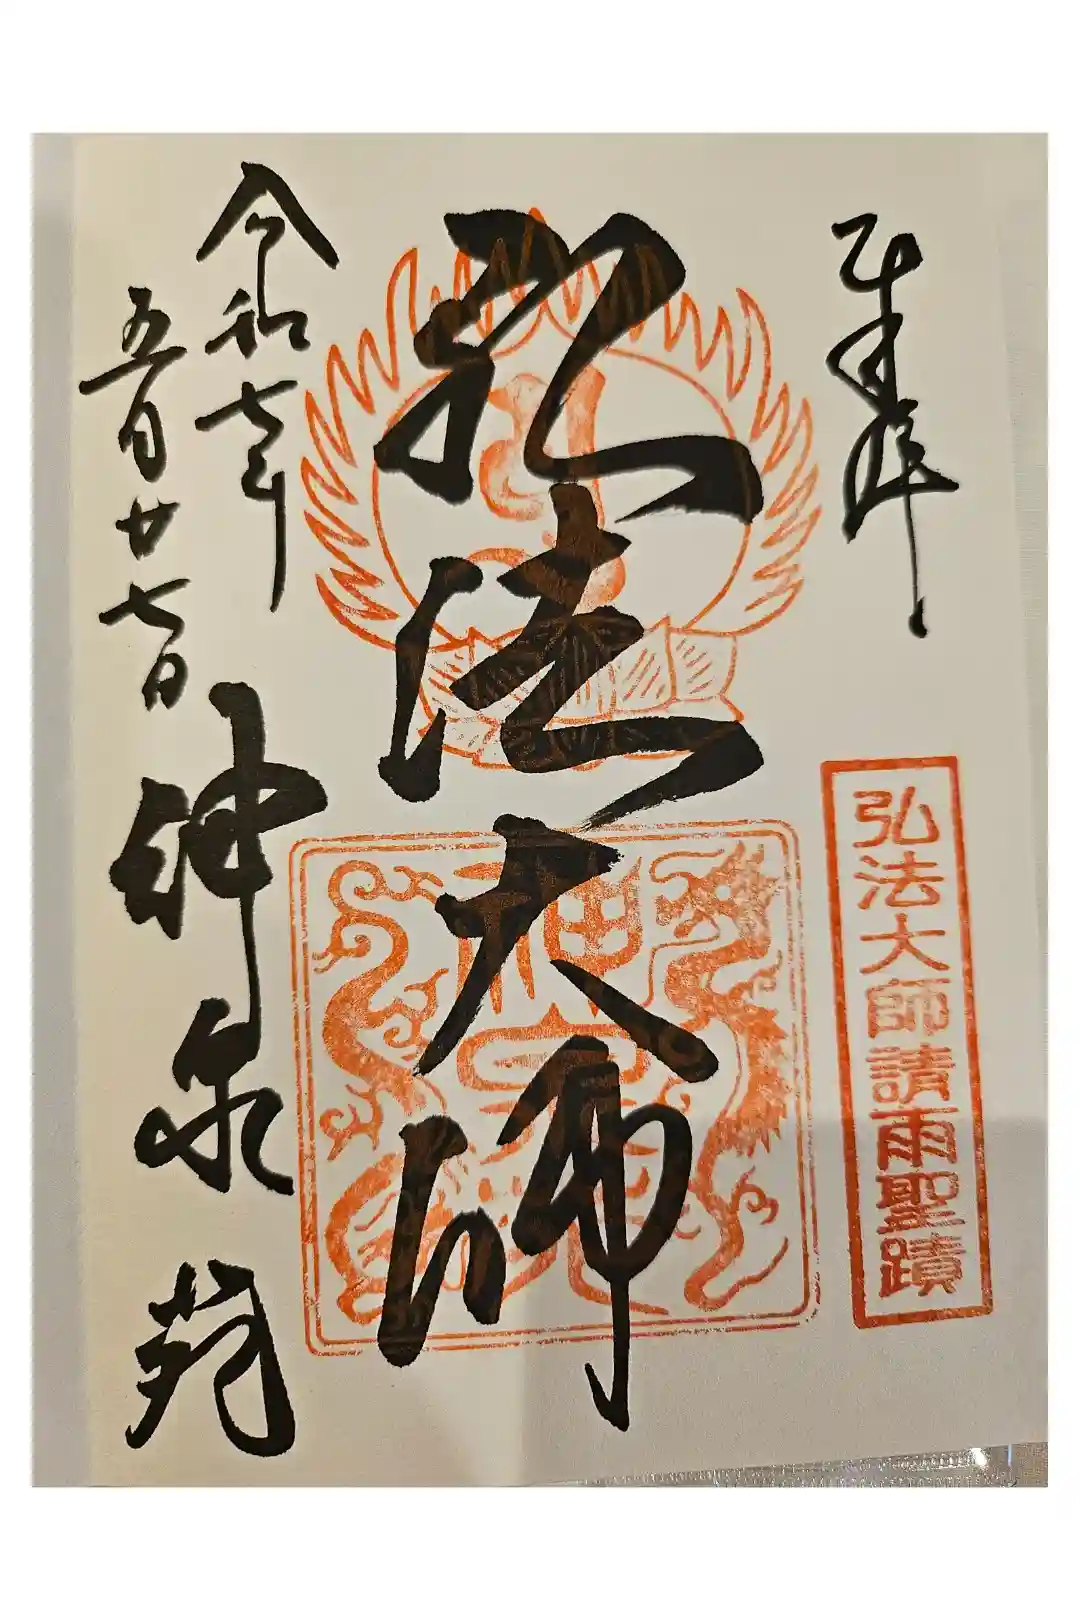 奉拝
弘法大師請雨聖蹟
弘法大師
令和七年
五月廿七日
神泉苑